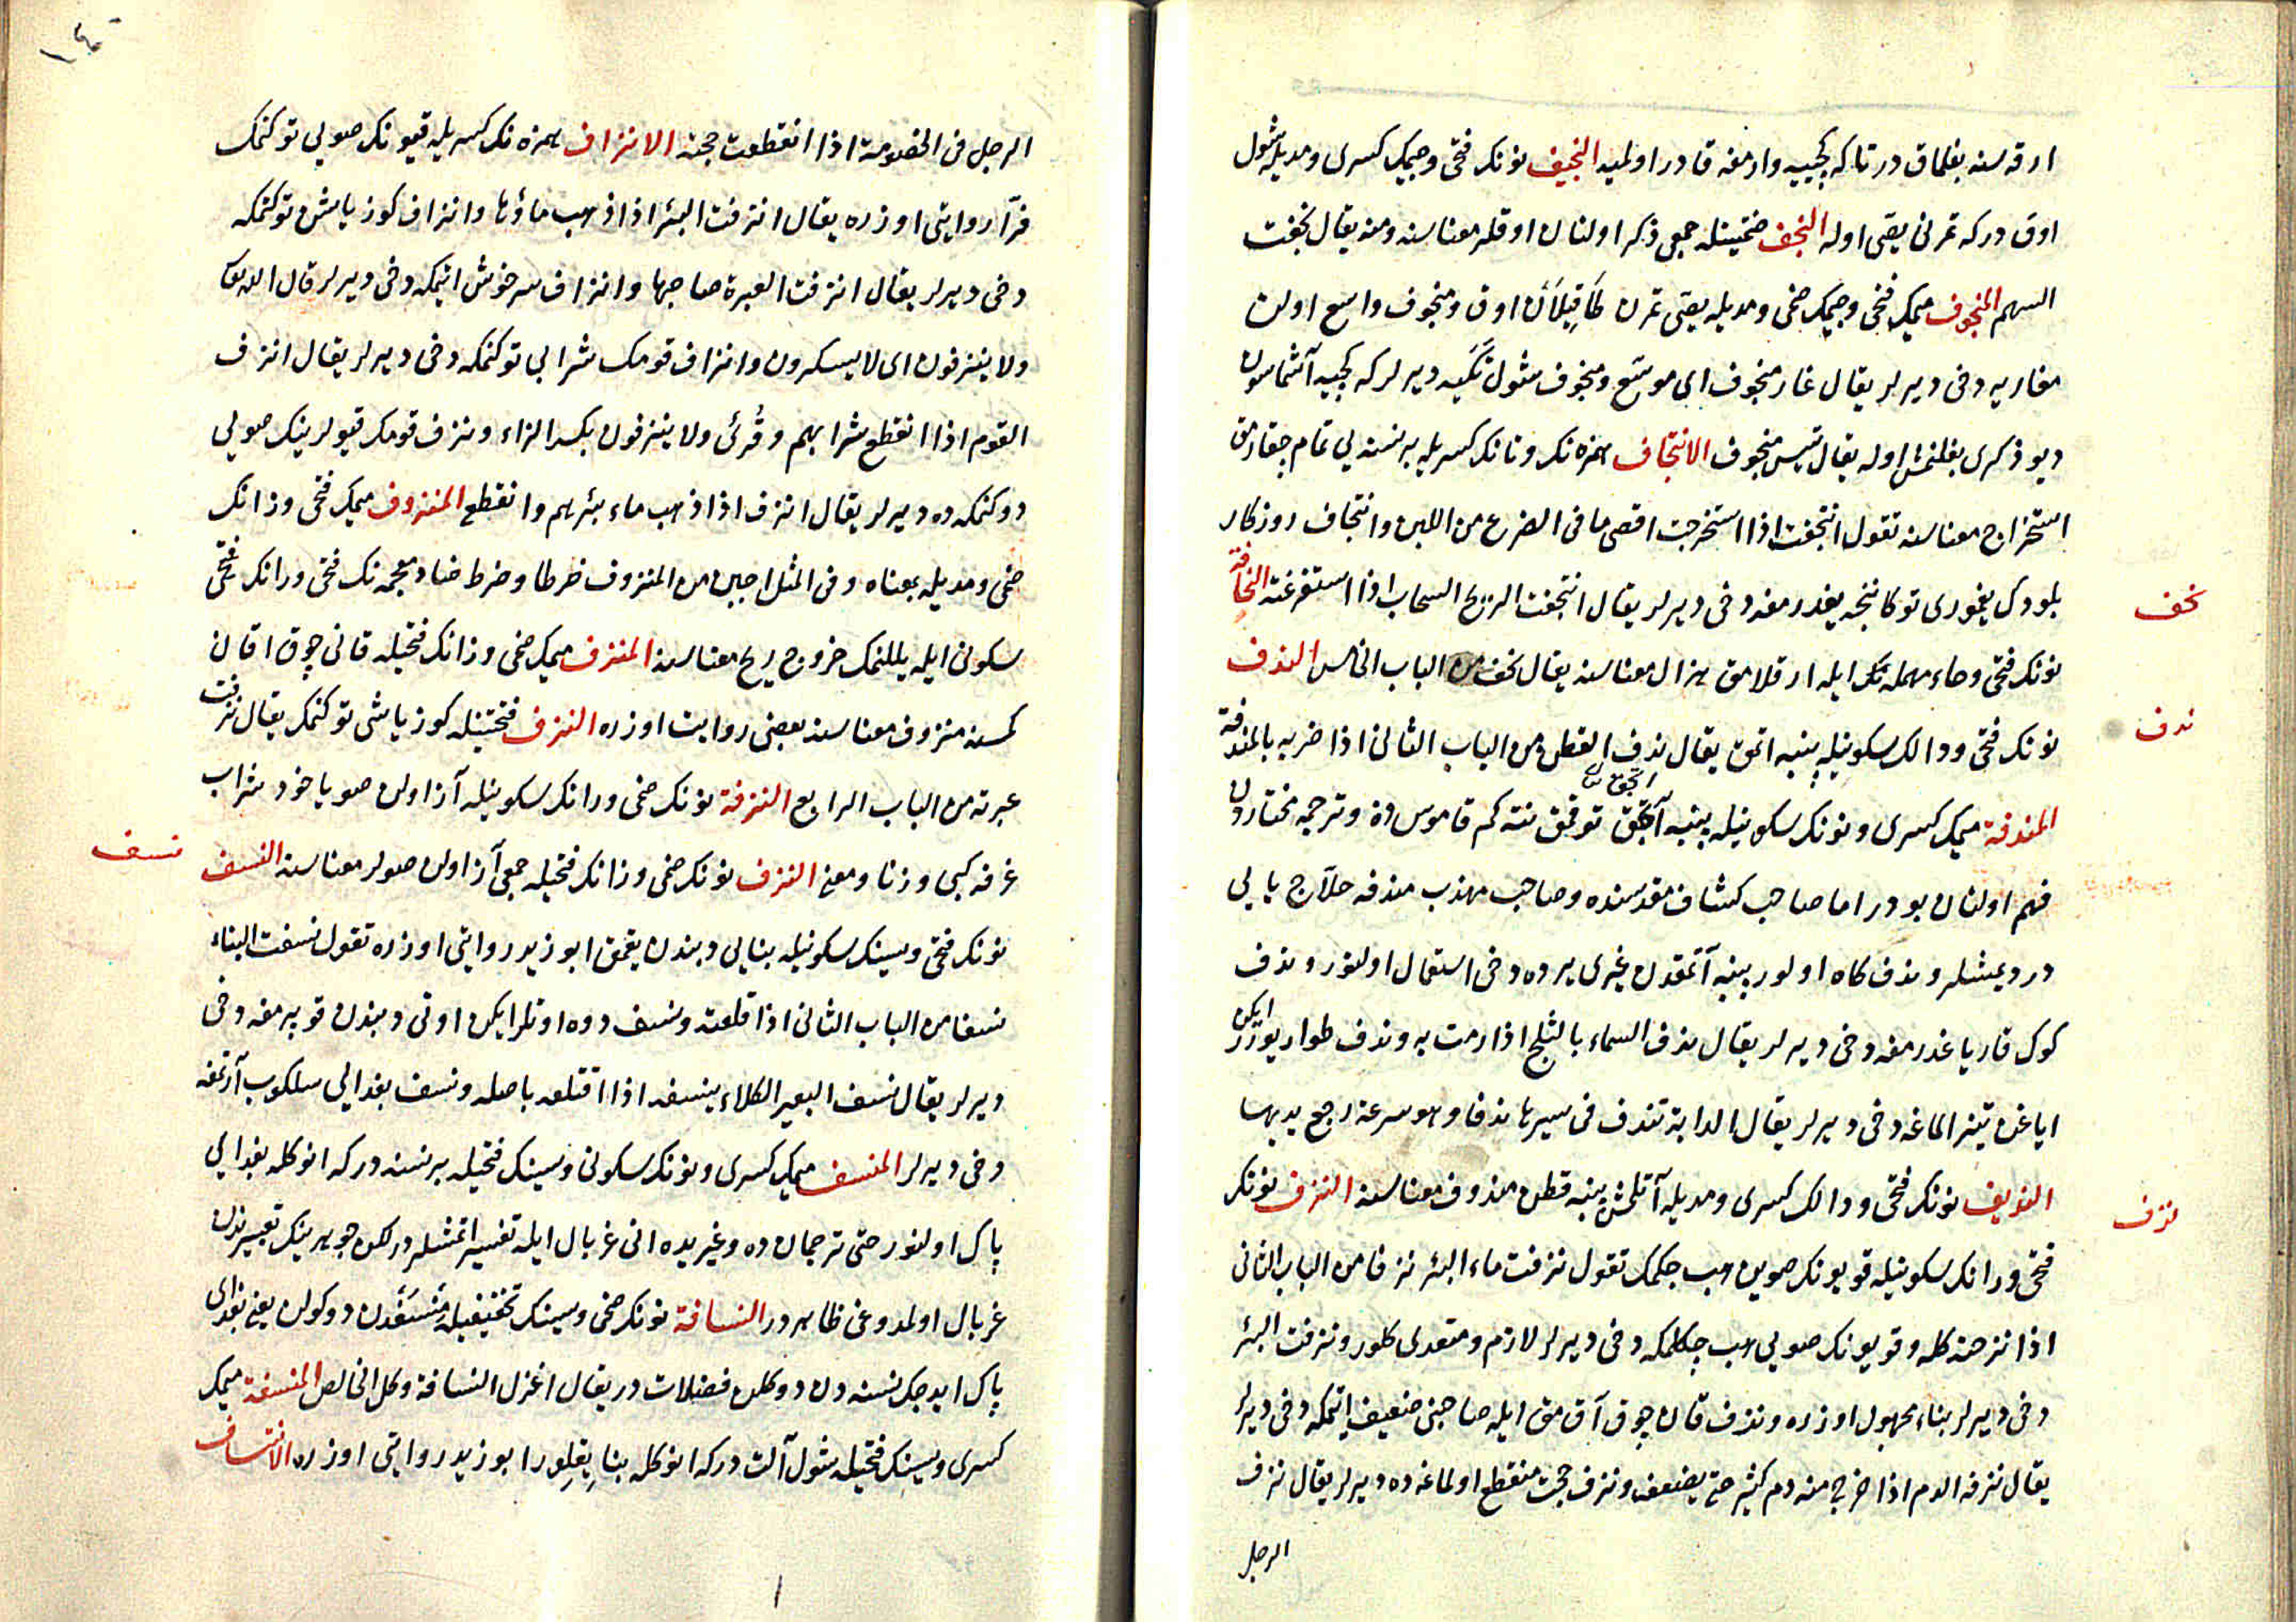 ارقه سنه بغلمق در تا كه كچييه وارمغه قادر اولميه النجيف نونك فتحى وجيمك كسرى ومديله شول
اوق در كه تمرنى يصى اوله النجف ضمتينله جمعى ذكر اولنان اوقلر معناسنه ومنه يقال نجفت
السهم المنجوف ميمك فتحى وجيمك ضمى ومديله يصى تمرن اوق ومنجوف واسع اولن
مغاريه دخى ديرلر يقال غار منجوف اى موسّع ومنجوف شول تكيه ديرلر كه كچيه آشماسون
ديو ذكرى بغلنمش اوله يقال تيس منجوف الانتجاف همزه نك وتانك كسريله بر نسنه يى تمام چقارمق
استخراج معناسنه تقول انتجفت اذا استخرجت اقصى ما فى الضرع من اللبن وانتجاف روزكار
بلودك يغمورى توكاننجه يغدرمغه دخى ديرلر يقال انتجفت الريح السحاب اذا استفرغته النحافة
نحف
نونك فتحى وحاء مهمله نك ايله ارقلامق هزال معناسنه يقال نحف من الباب الخامس الندف
ندف
نونك فتحى ودالك سكونيله پنبه اتمق يقال ندف القطن من الباب الثانى اذا ضربه بالمندفة
المندفة ميمك كسرى ونونك سكونيله پنبه آتجق توقمق نته كم قاموس ده وترجمه مختاردن
فهم اولنان بودر اما صاحب كشاف مقدمسنده وصاحب مهذب مندفه حلاج يايى
در ديمشلر وندف كاه اولور پنبه آتمقدن غيرى يرده دخى استعمال اولنور وندف
كوك قار ياغدرمغه دخى ديرلر يقال ندف السماء بالثلج اذا رمت به وندف طوار يورر ايكن
اياغن تيز الماغه دخى ديرلر يقال الدابة تندف فى سيرها ندفا وهو سرعة رجع يديها
النديف نونك فتحى ودالك كسرى ومديله آتلمش پنبه قطن مندوف معناسنه النزف نونك
نزف
فتحى وزانك سكونيله قويونك صوين هب چكمك تقول نزفت ماء البئر نزفا من الباب الثانى
اذا نزحته كله وقويونك صويى هب چكلمكه دخى ديرلر لازم ومتعدى كلور ونزفت البئر
دخى ديرلر بناء مجهول اوزره ونزف قان چوق آقمق ايله صاحبنى ضعيف ايتمكه دخى ديرلر
يقال نزفه الدم اذا خرج منه دم كثير حتى يضعف ونزف حجت منقطع اولماغه ده ديرلر يقال نزف
الرجل
الرجل فى الخصومة اذا انقطعت حجته الانزاف همزه نك كسريله قيونك صويى توكنمك
فرّاء روايتى اوزره يقال انزفت البئر اذا ذهب ماؤها وانزاف كوز ياشى توكنمكه
دخى ديرلر يقال انزفت العبرة صاحبها وانزاف سرخوش اتمكه دخى ديرلر قال الله تعالى
ولا ينزفون اى لا يسكرون وانزاف قومك شرابى توكنمكه دخى ديرلر يقال انزف
القوم اذا انقطع شرابهم وقُرئ ولا ينزفون بكسر الزاء ونزف قومك قيولرينك صويى
دوكنمكه ده ديرلر يقال انزف اذا ذهب ماء بئرهم وانقطع المنزوف ميمك فتحى وزانك
ضمى ومديله بمعناه وفى المثل اجبن من المنزوف ضرطا وضرط ضاد معجمه نك فتحى ورانك فتحى
سكونى ايله يللنمك خروج ريح معناسنه المنزف ميمك ضمى وزانك فتحيله قانى چوق اقان
كمسنه منزوف معناسنه بعضى روايت اوزره النزف فتحتينله كوز ياشى توكنمك يقال نزفت
عبرته من الباب الرابع النزفة نونك ضمى وزانك سكونيله آز اولن صو يا خود شراب
غرفه كبى وزنا ومعنى النزف نونك ضمى وزانك فتحيله جمعى آز اولن صولر معناسنه النسف
نسف
نونك فتحى وسينك سكونيله بنايى ديبندن يقمق ابو زيد روايتى اوزره تقول نسفت البناء
نسفا من الباب الثانى اذا قلعته ونسف دوه اوتلر ايكن اوتى ديبندن قوپرمغه دخى
ديرلر يقال نسف البعير الكلاء ينسفه اذا اقتلعه باصله ونسف بغدايى سلكوب آرتمغه
دخى ديرلر المنسف ميمك كسرى ونونك سكونى وسينك فتحيله بر نسنه در كه انوكله بغدايى
پاك اولنور حتى ترجمان ده وغيريده انى غربال ايله تفسير اتمشلر در لكن جوهرينك تعبيرندن
غربال اولمدوغى ظاهر در النسافة نونك ضمى وسينك تخفيفيله منسفدن دوكولن يعنى بغداى
پاك ايدجك نسنه دن دوكلن فضلات در يقال اعزل النسافة وكل الخالص المنسفة ميمك
كسرى وسينك فتحيله شول آلت در كه انوكله بنا يقلور ابو زيد روايتى اوزره الانتساف